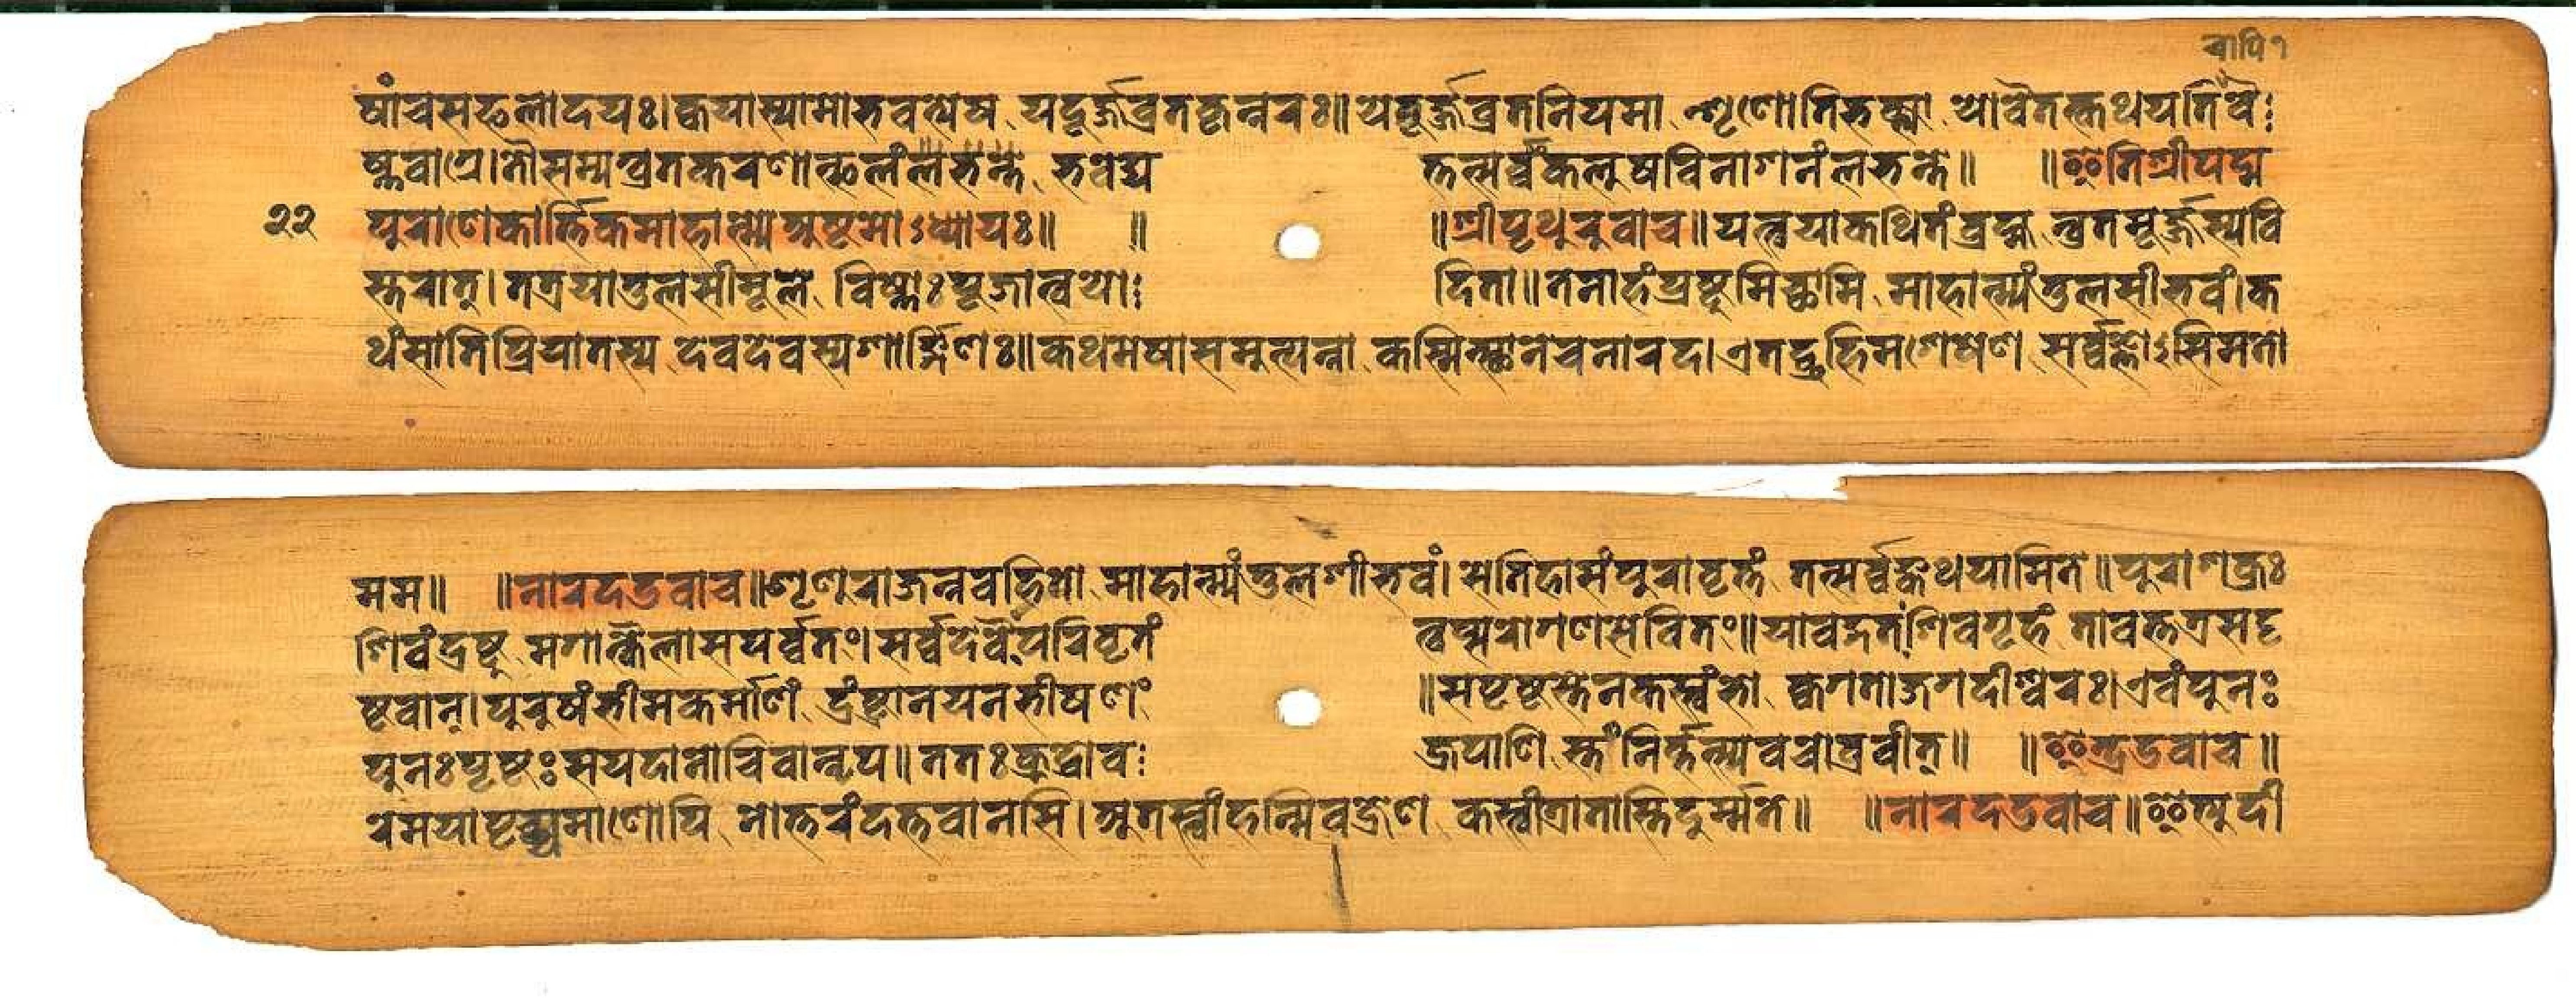 वापि १
षांचसफलोदयः। क्वयास्यामोभवत्येष यदूर्ज्जव्रतकृन्नरः॥ येमूर्ज्जव्रतनियमा न्शृणोतिभक्त्या योवैतत्कथयतिवै
ष्णवाग्रे। तौसम्यग्व्रतकरणात्फलंलभन्ते भवेद्य त्तत्सर्व्वंकलुषविनाशनंलभन्ते॥ ॥इतिश्रीपद्म
२२ पुराणेकार्त्तिकमाहात्म्येअष्टमोऽध्यायः॥ ॥ ॥श्रीपृथुरुवाच॥ यत्त्वयाकथितंब्रह्म न्व्रतमूर्ज्जस्यवि
स्तरात्। तत्रयातुलसीमूले विष्णोःपूजात्वयो दिता॥ तेनाहंप्रष्टुमिच्छामि माहात्म्यंतुलसीभवं। क
थंसातिप्रियातस्य देवदेवस्यशार्ङ्गिणः॥ कथमेषासमुत्पन्ना कस्मिन्स्थानेचनारद। एतद्ब्रूहिमशेषेण सर्व्वज्ञोऽसिमतो
मम॥ ॥नारदउवाच॥ शृणुराजन्नवहितो माहात्म्यंतुलशीभवं। सेतिहासंपुरावृत्तं तत्सर्व्वङ्कथयामिते॥ पुराशक्रः
शिवंद्रष्टु मगात्कैलासपर्व्वतः। सर्व्वदेवैःपरिवृतं त्वप्सरोगणसेवितः॥ यावद्गतंशिवगृहं तावत्तत्रसदृ
ष्टवान्। पुरुषंभीमकर्माणं द्रंष्ट्रानयनभीषणं ॥सपृष्टस्तेनकस्त्वंभो क्वगतोजगदीश्वरः। एवंपुनः
पुनःपृष्टःसयदानोचिवान्नृप॥ ततःक्रुद्धोव ज्रपाणि स्तांनिर्भर्त्स्यवचोब्रवीत्॥ ॥इन्द्रउवाच॥
रेमयापृच्छ्यमाणोपि नोत्तरंदत्तवानसि। अतस्त्वांहन्मिवज्रेण कस्त्वांत्रातास्तिदुर्म्मते॥ ॥नारदउवाच॥ इत्युदी